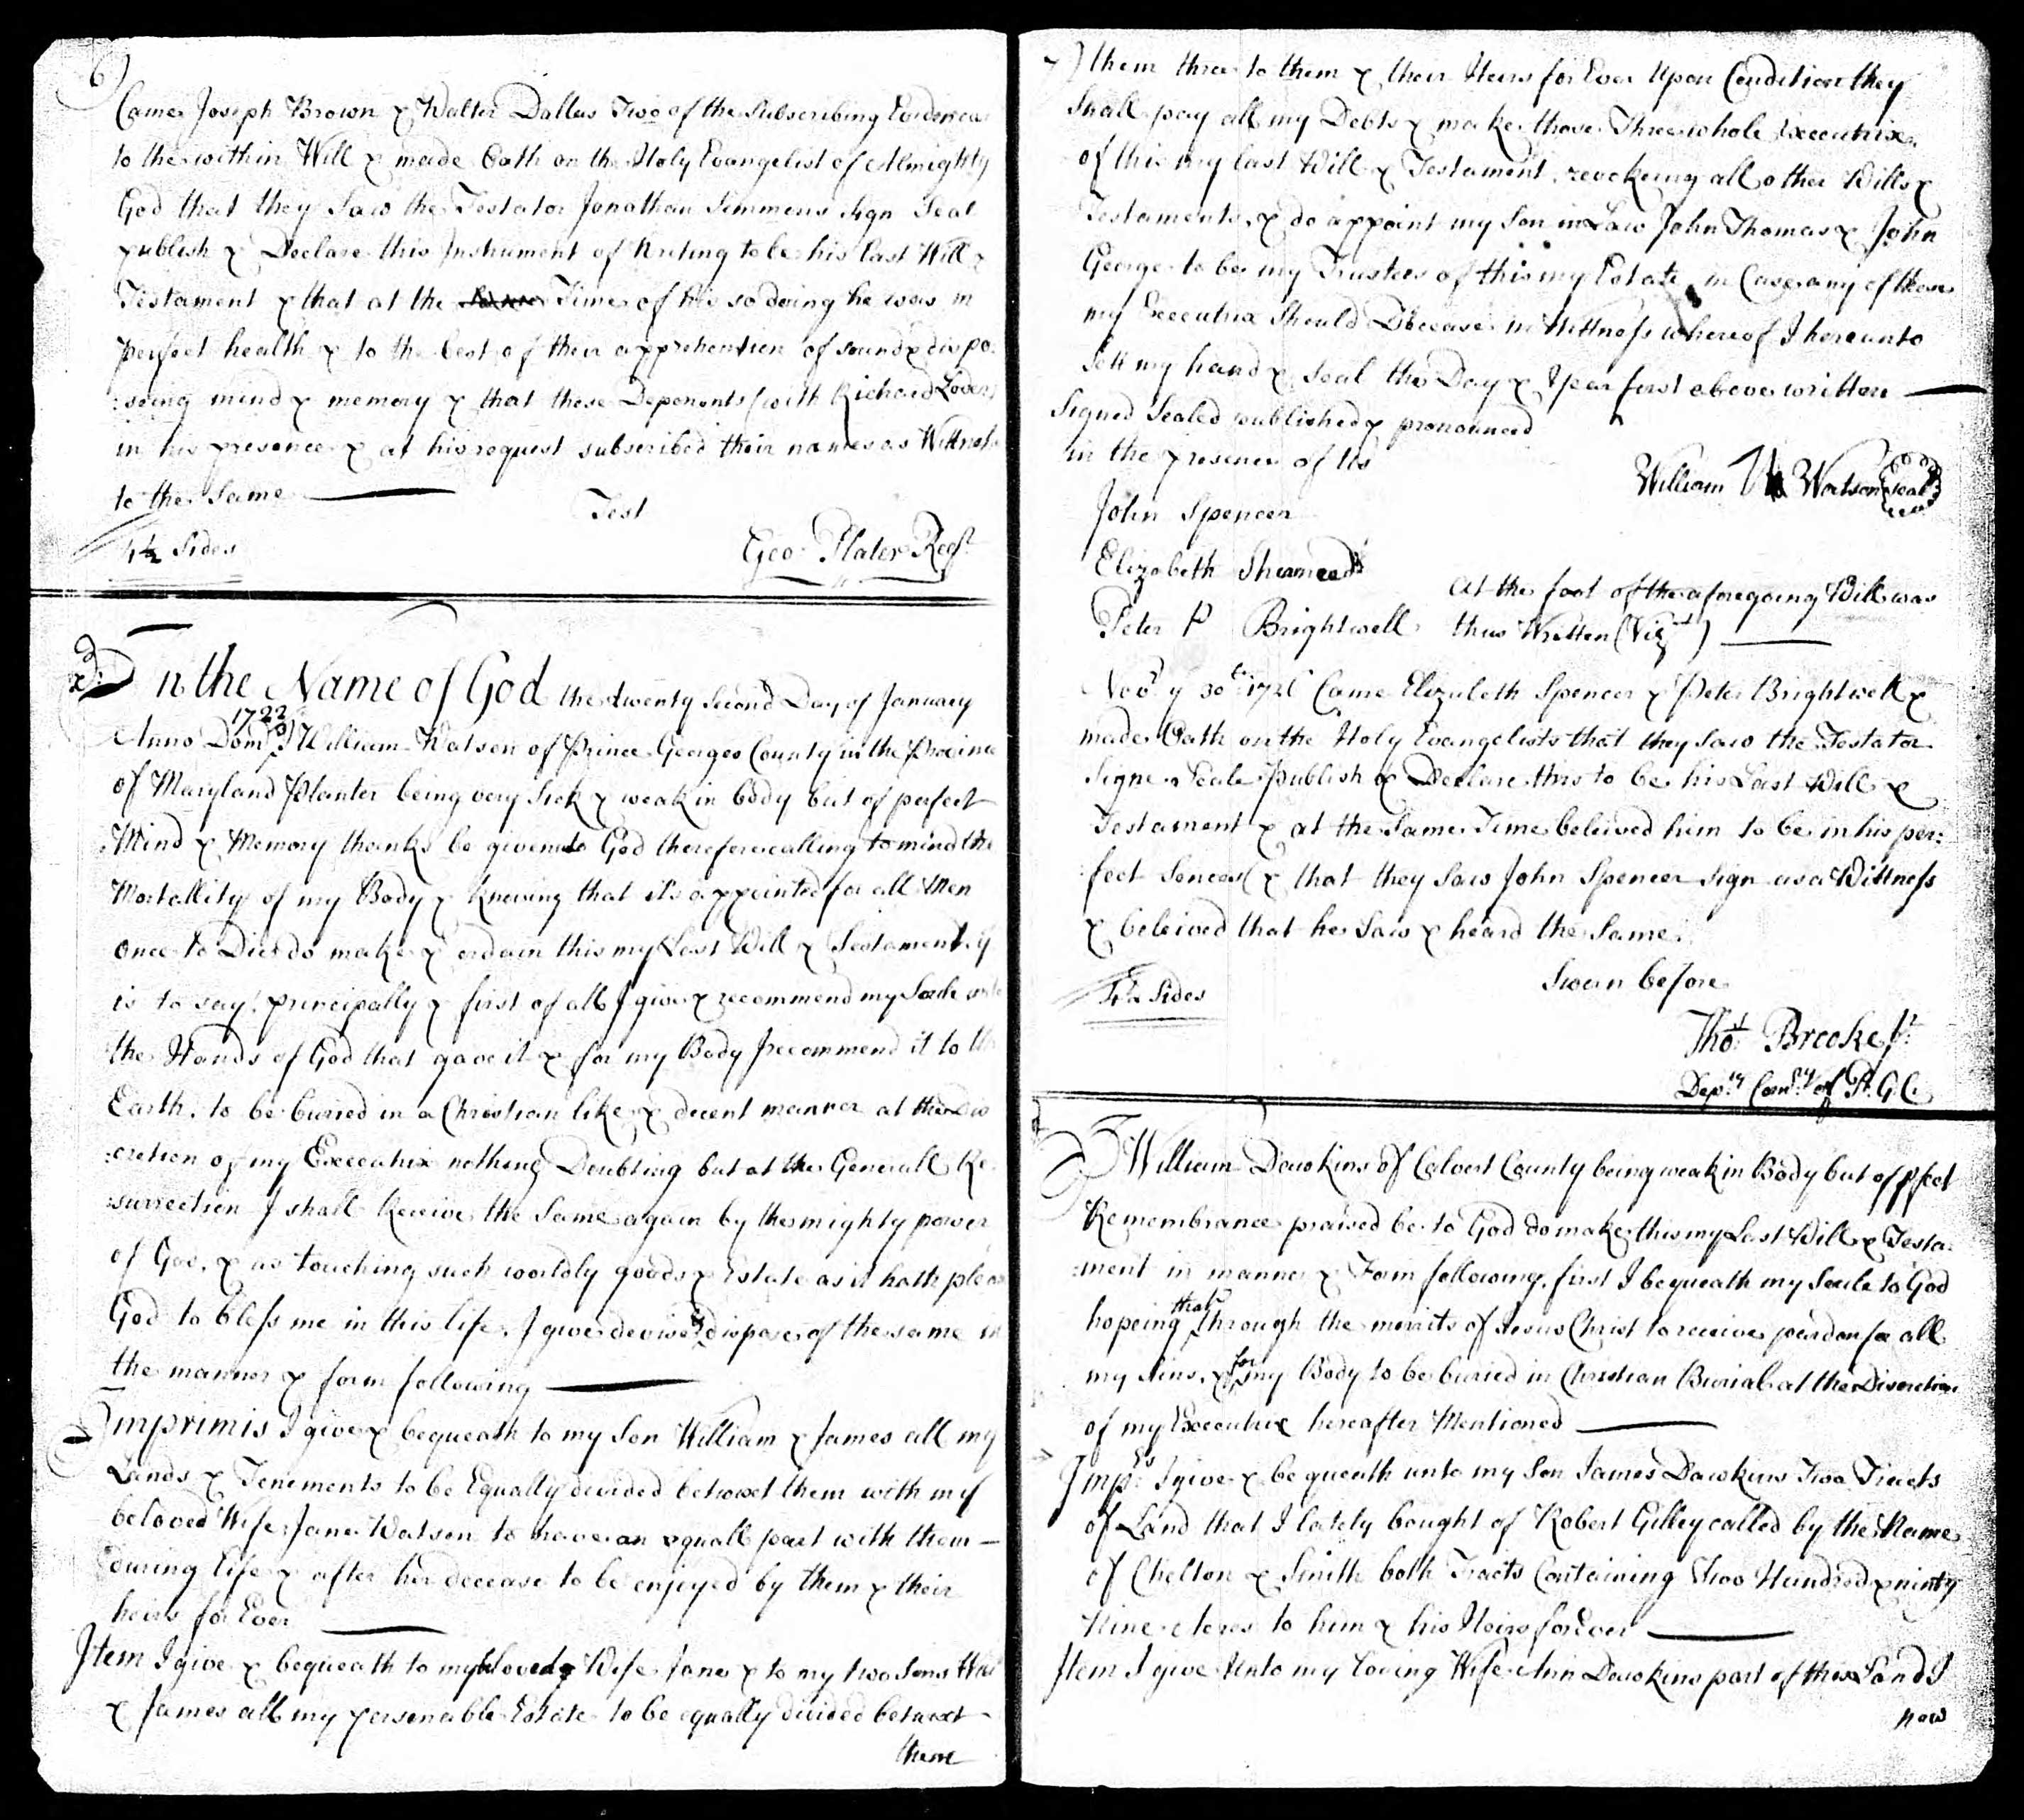 6)
Came Joseph Brown & Walter Dallas Two of the Subscribing Evidences
to the within Will & made Oath on the Holy Evangelist of Almighty
God that they Saw the Testator Jonathan Simmons Sign Seal
publish & Declare this Instrument of Writing to be his last Will &
Testament & that at the Time of his so doing he was in
perfect health & to the best of their apprehention of sound & dispo:
:seing mind & memory & that these Deponents (with Richard
in his presence & at his request subscribed their names as Wittness
to the Same
Test
4½ Sides
Geo: Plater Regr.
In the Name of God the twenty Second Day of January
Anno Dom 1722/3 I William Watson of Prince Georges County in the Province
of Maryland Planter being very Sick & weak in body but of perfect
Mind & Memory thanks be given to God therefore calling to mind the
Mortallity of my Body & knowing that it's appointed for all Men
once to Die do make & ordain this my Last Will & Testament, yt
is to say, principally & first of all I give & recommend my Soule into
the Hands of God that gave it & for my Body I recommend it to the
Earth, to be buried in a Christian like & decent manner at the Dis
:cretion of my Executrix nothing Doubting but at the Generall Re:
:surrection I shall Receive the Same again by the mighty power
of God, & as touching such worldly goods & Estate as it hath pleas
God to bless me in this life, I give devise & dispose of the same in
the manner & form following
Imprimis I give & bequeath to my Son William & James all my
Lands & Tenements to be Equally divided betwixt them with my
beloved Wife Jane Watson to have an equall part with them
during life & after her decease to be enjoyed by them & their
heirs for Ever
Item I give & bequeath to my beloved Wife Jane & to my two Sons Will
& James all my personable Estate to be equally divided betwixt
them
7) them three to them & their Heirs for Ever Upon Condition they
Shall pay all my Debts & make those Three whole Executrix
of this my last Will & Testament, revokeing all other Wills &
Testaments, & do appoint my Son in Law John Thomas & John
George to be my Trustees of this my Estate, in Case any of these
my Executrix Should Decease in Wittness whereof I hereunto
Sett my hand & Seal the Day & Year first above written
Signed Sealed published & pronounced
in the presence of Us
William W Watson (Seal)
John Spencer
Elizabeth
Peter P Brightwell
At the foot of the aforegoing Will was
thus Written (Vizt)
Novr. ye 30th Came Elizabeth Spencer & Peter Brightwell &
made Oath on the Holy Evangelists that they Saw the Testator
Signe Seale Publish & Declare this to be his Last Will &
Testament & at the Same Time beleived him to be in his per:
:fect Sences (& that they Saw John Spencer sign as a Wittness
& beleived that he Saw & heard the Same.
Sworn before
4½ Sides
Thos. Brooke Jr.
Depty. Comry. of Pr. G. C.
I William Dawkins of Calvert County being weak in Body but of pfect
Remembrance praised be to God do make this my Last Will & Testa:
:ment in manner & Form following, first I bequeath my Soule to God
hopeing that through the merrits of Jesus Christ to receive pardon for all
my Sins, & for my Body to be buried in Christian Burial at the Discretion
of my Executrix hereafter Mentioned
Imprs. I give & bequeath unto my Son James Dawkins Two Tracts
of Land that I lately bought of Robert Gilley called by the Name
of Chelton & Smith both Tracts Containing Two Hundred & ninty
Nine Acres to him & his Heirs forever
Item I give Unto my loving Wife Ann Dawkins part of this Land I
now